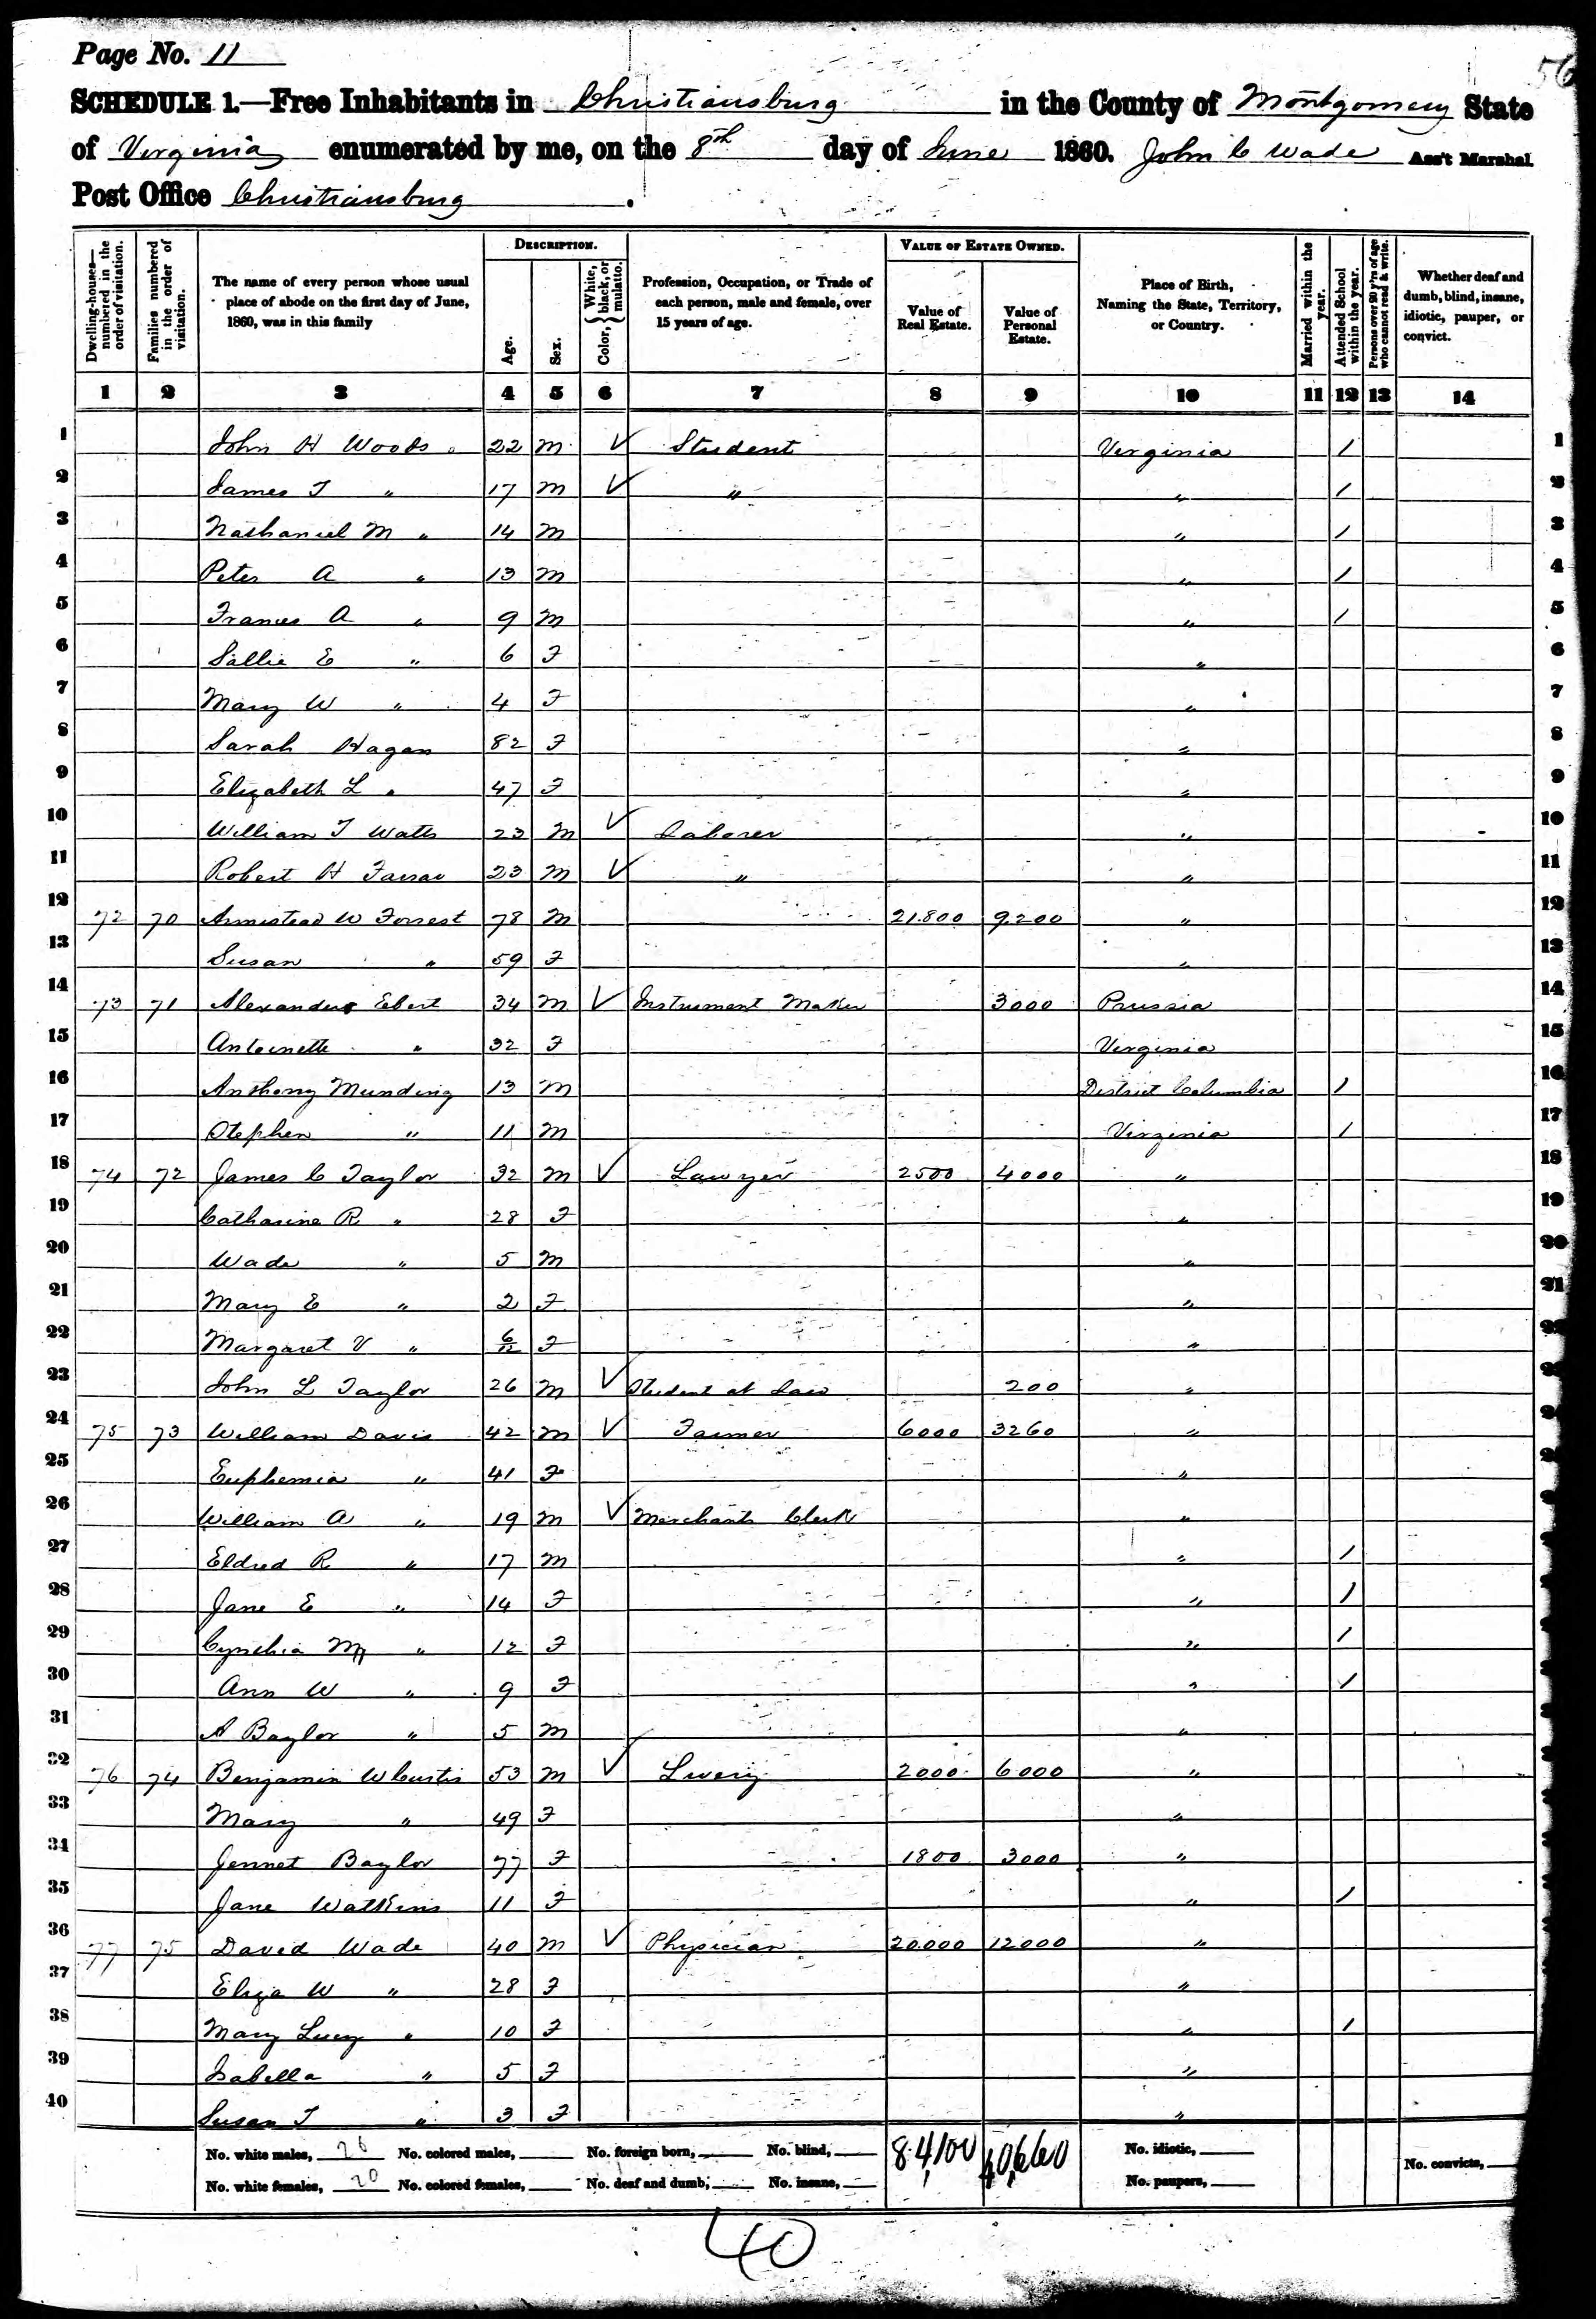 Page No. 11
56
SCHEDULE 1.—Free Inhabitants in Christiansburg in the County of Montgomery State
of Virginia enumerated by me, on the 8th day of June 1860. John C Wade Ass't Marshal.
Post Office Christiansburg.
Dwelling-houses—numbered in the order of visitation.
Families numbered in the order of visitation.
The name of every person whose usual place of abode on the first day of June, 1860, was in this family
DESCRIPTION.
Age.
Sex.
Color, } White, black, or mulatto.
Profession, Occupation, or Trade of each person, male and female, over 15 years of age.
VALUE OF ESTATE OWNED.
Value of Real Estate.
Value of Personal Estate.
Place of Birth, Naming the State, Territory, or Country.
Married within the year.
Attended School within the year.
Persons over 20 y'rs of age who cannot read & write.
Whether deaf and dumb, blind, insane, idiotic, pauper, or convict.
1 2 3 4 5 6 7 8 9 10 11 12 13 14
1 John H Woods 22 M ✓ Student Virginia / 1
2 James T " 17 M ✓ " " / 2
3 Nathaniel M " 14 M " / 3
4 Peter A " 13 M " / 4
5 Frances A " 9 M " / 5
6 Sallie E " 6 F " 6
7 Mary W " 4 F " 7
8 Sarah Hagan 82 F " 8
9 Elizabeth L " 47 F " 9
10 William T Watts 23 M ✓ Laborer " 10
11 Robert H 23 M ✓ " " 11
12 72 70 Armistead W Forrest 78 M 21.800 9.200 " 12
13 Susan " 59 F " 13
14 73 71 Alexander Ebert 34 M ✓ Instrument Maker 3000 Prussia 14
15 Antoinette " 32 F Virginia 15
16 Anthony Munding 13 M District Columbia / 16
17 Stephen " 11 M Virginia / 17
18 74 72 James C Taylor 32 M ✓ Lawyer 2500 4000 " 18
19 Catharine R " 28 F " 19
20 Wade " 5 M " 20
21 Mary E " 2 F " 21
22 Margaret V " 6/12 F "
23 John L Taylor 26 M ✓ Student at Law 200 "
24 75 73 William Davis 42 M ✓ Farmer 6000 3260 "
25 Euphemia " 41 F "
26 William A " 19 M ✓ Merchants Clerk "
27 Eldred R " 17 M " /
28 Jane E " 14 F " /
29 Cynthia M " 12 F " /
30 Ann W " 9 F " /
31 A Baylor " 5 M "
32 76 74 Benjamin W Curtis 53 M ✓ Livery 2000 6000 "
33 Mary " 49 F "
34 Jennet Baylor 77 F 1800 3000 "
35 Jane Watkins 11 F " /
36 77 75 David Wade 40 M ✓ Physician 20.000 12000 "
37 Eliza W " 28 F "
38 Mary Lucy " 10 F " /
39 Isabella " 5 F "
40 Susan T " 3 F "
No. white males, 20 No. colored males, No. foreign born, No. blind, 84,100 40,660 No. idiotic,
No. white females, 20 No. colored females, No. deaf and dumb, No. insane, No. paupers, No. convicts,
40